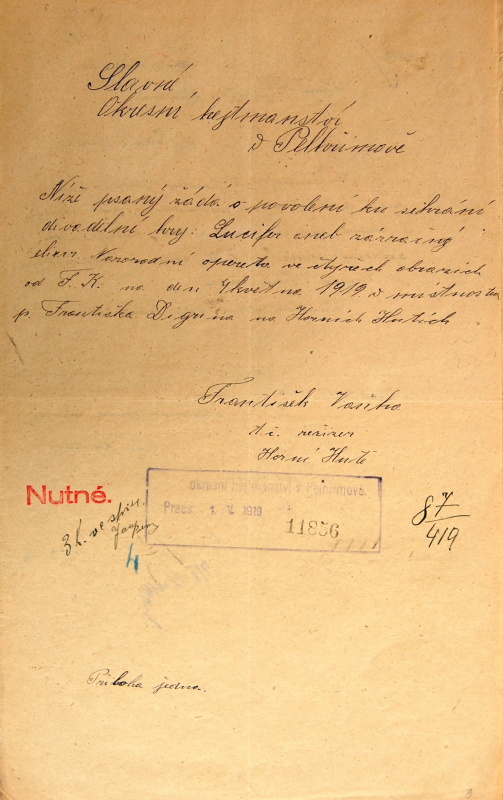 Slavné
Okresní hejtmanství
v Pelhřimově
Níže psaný žádá o povolení ku sehrání
divadelní hry: Lucifer aneb zázračný
elixir. Novorodní opereta ve čtyřech obrazích
od F. K. na den 4 května 1919 v místnostech
p. Františka Digrina na Horních Hutích
František Vaňha
t. č. režizer
Horní Hutě
Nutné.
okresní hejtmanství v Pelhřimově.
Praes 1 V. 1919
11856
8 7/419
3 k. ve spisu.
4
Příloha jedna.